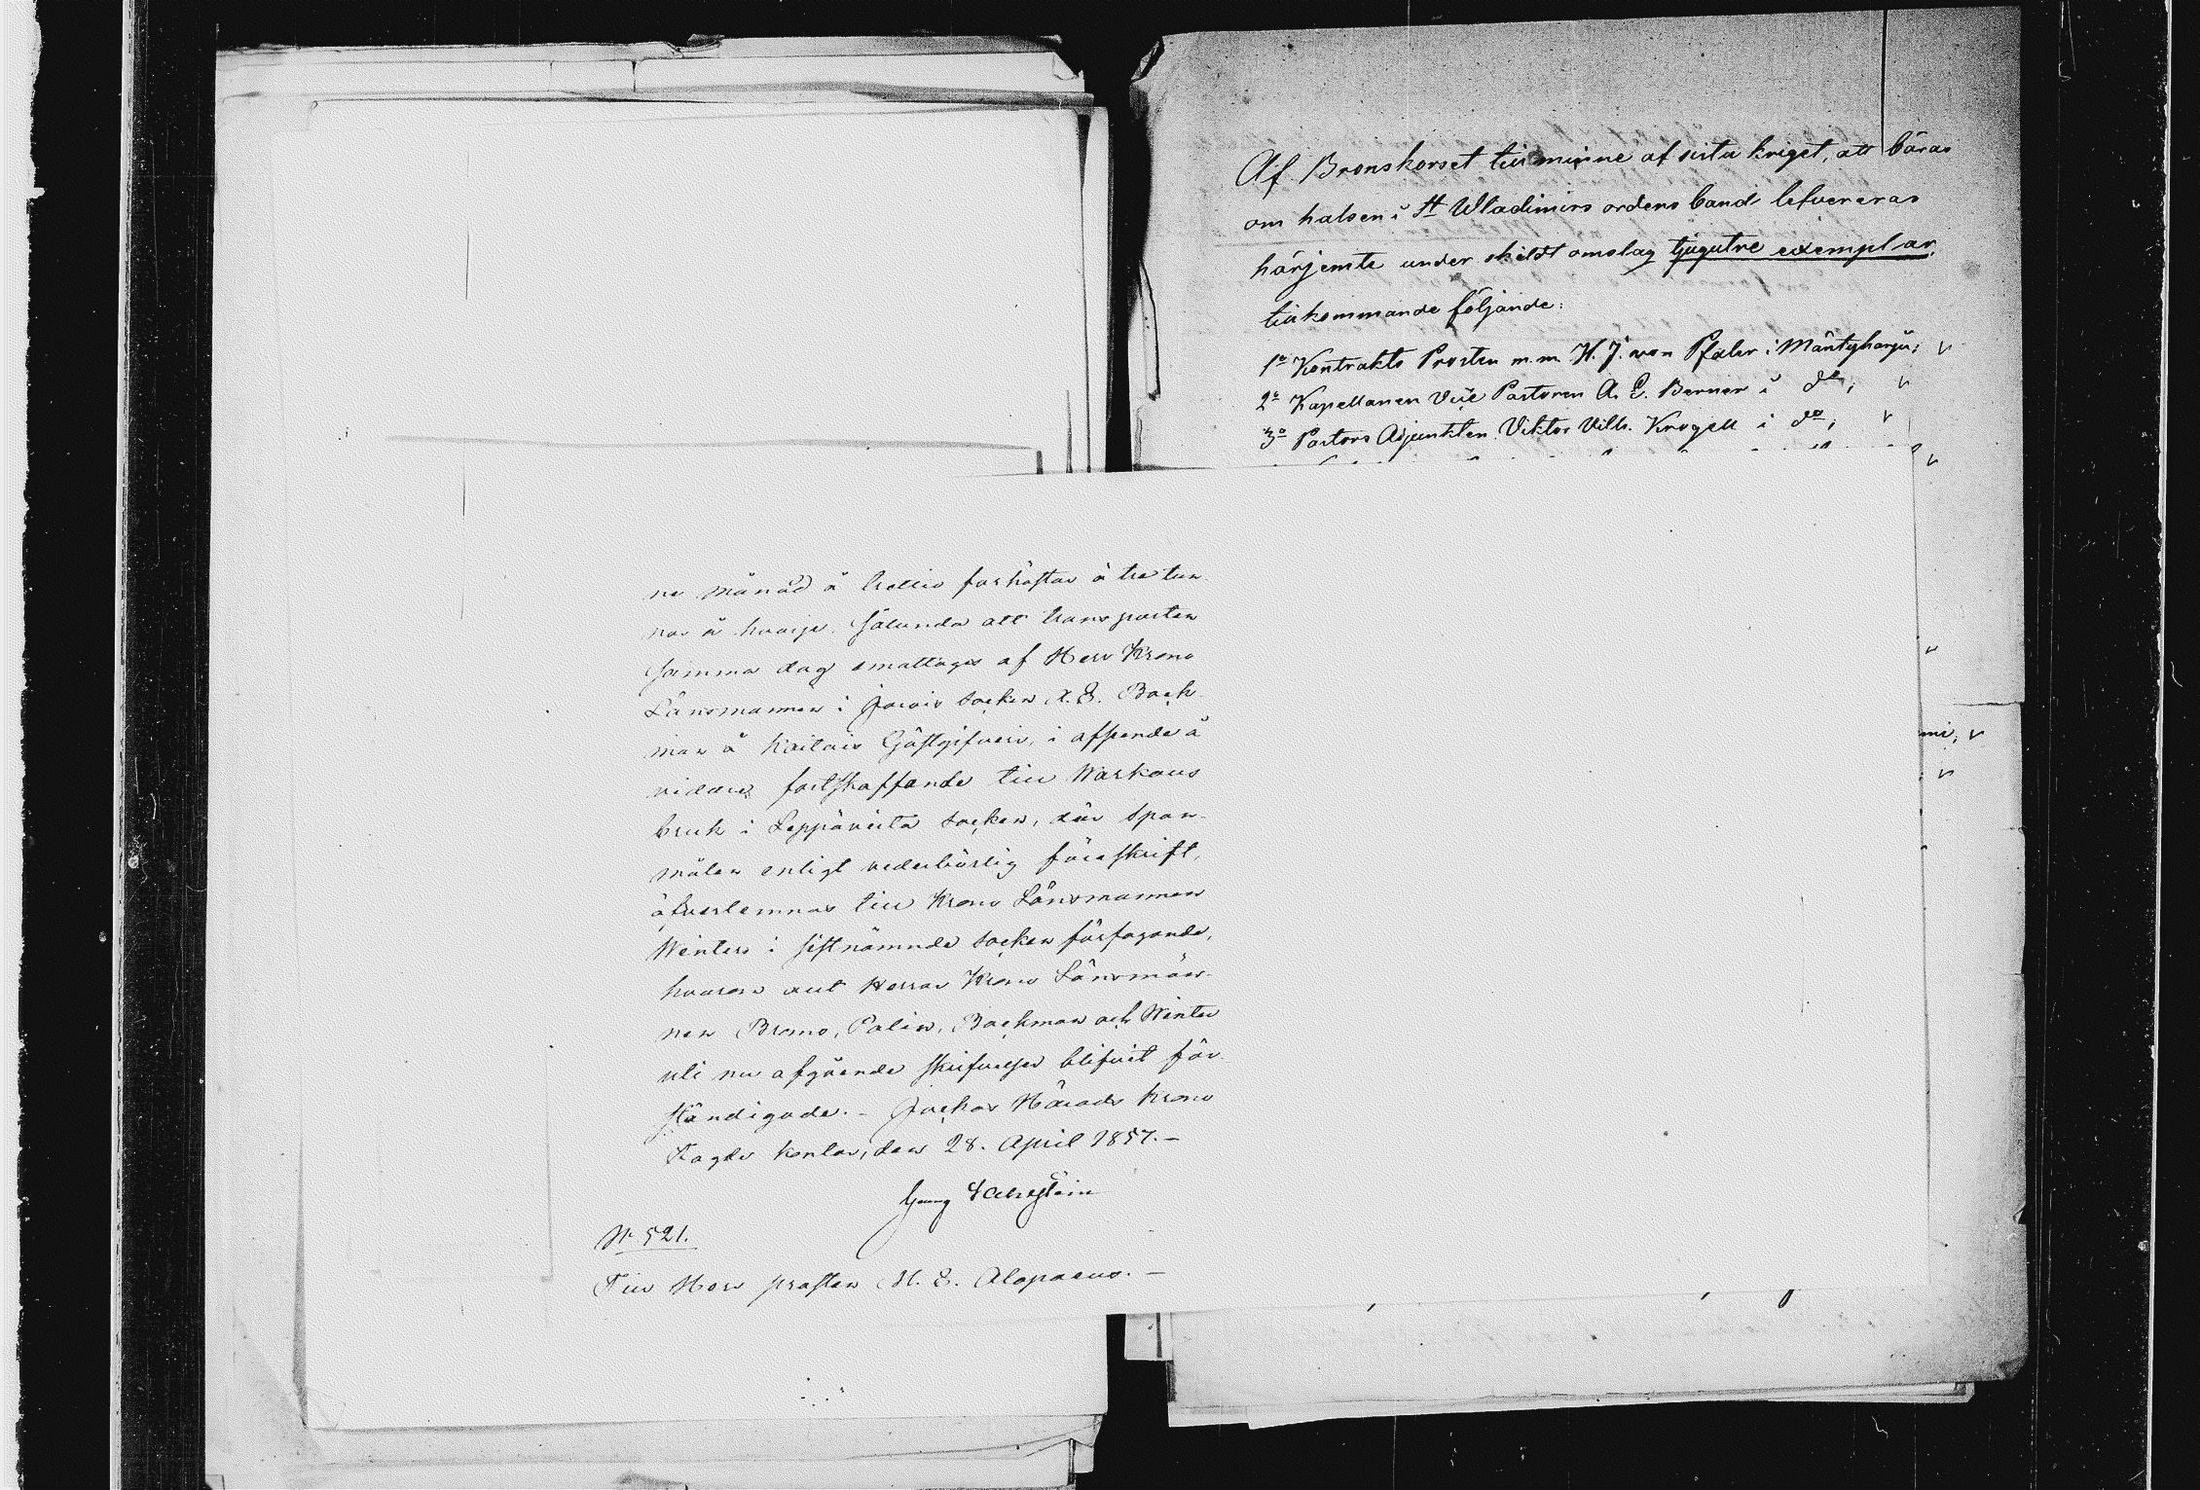 Af Bronskorset till minne af sista kriget, att bäras
om halsen i St Wladimirs ordens band lefvereras
härjemte under skildt omslag tjugutre exemplar,
tillkommande följande:
1o Kontrakts Prosten m.m. H. J. von Pfaler i Mäntyharju;
2o Kapellanen Vice Pastoren A. E. Berner i do;
3o Pastors Adjunkten Viktor Vilh. Krogell i do;
mi;
ne månad å trettio forhästar à tre tun-
nor å hvarje. Sålunda att transporten
samma dag emottages af Herr Krono
Länsmannen i Jorois socken A. E. Back-
man å Kaitais Gästgifveri, i afseende å
vidare fortskaffande till Warkaus
bruk i Leppävirta socken, der span-
målen enligt vederbörlig föreskrift,
öfverlemnas till Krono Länsmannen
Winters i sistnämnde socken förfogande,
hvarom ock Herrar Krono Länsmän-
nen Bromo, Palin, Backman och Winter
uti nu afgående skrifvelser blifvit för-
ständigade. – Jockas Härads Krono
Fogde kontor, den 28. April 1857. –
Georg
No 521.
Till Herr prosten M. E. Alopaeus. –